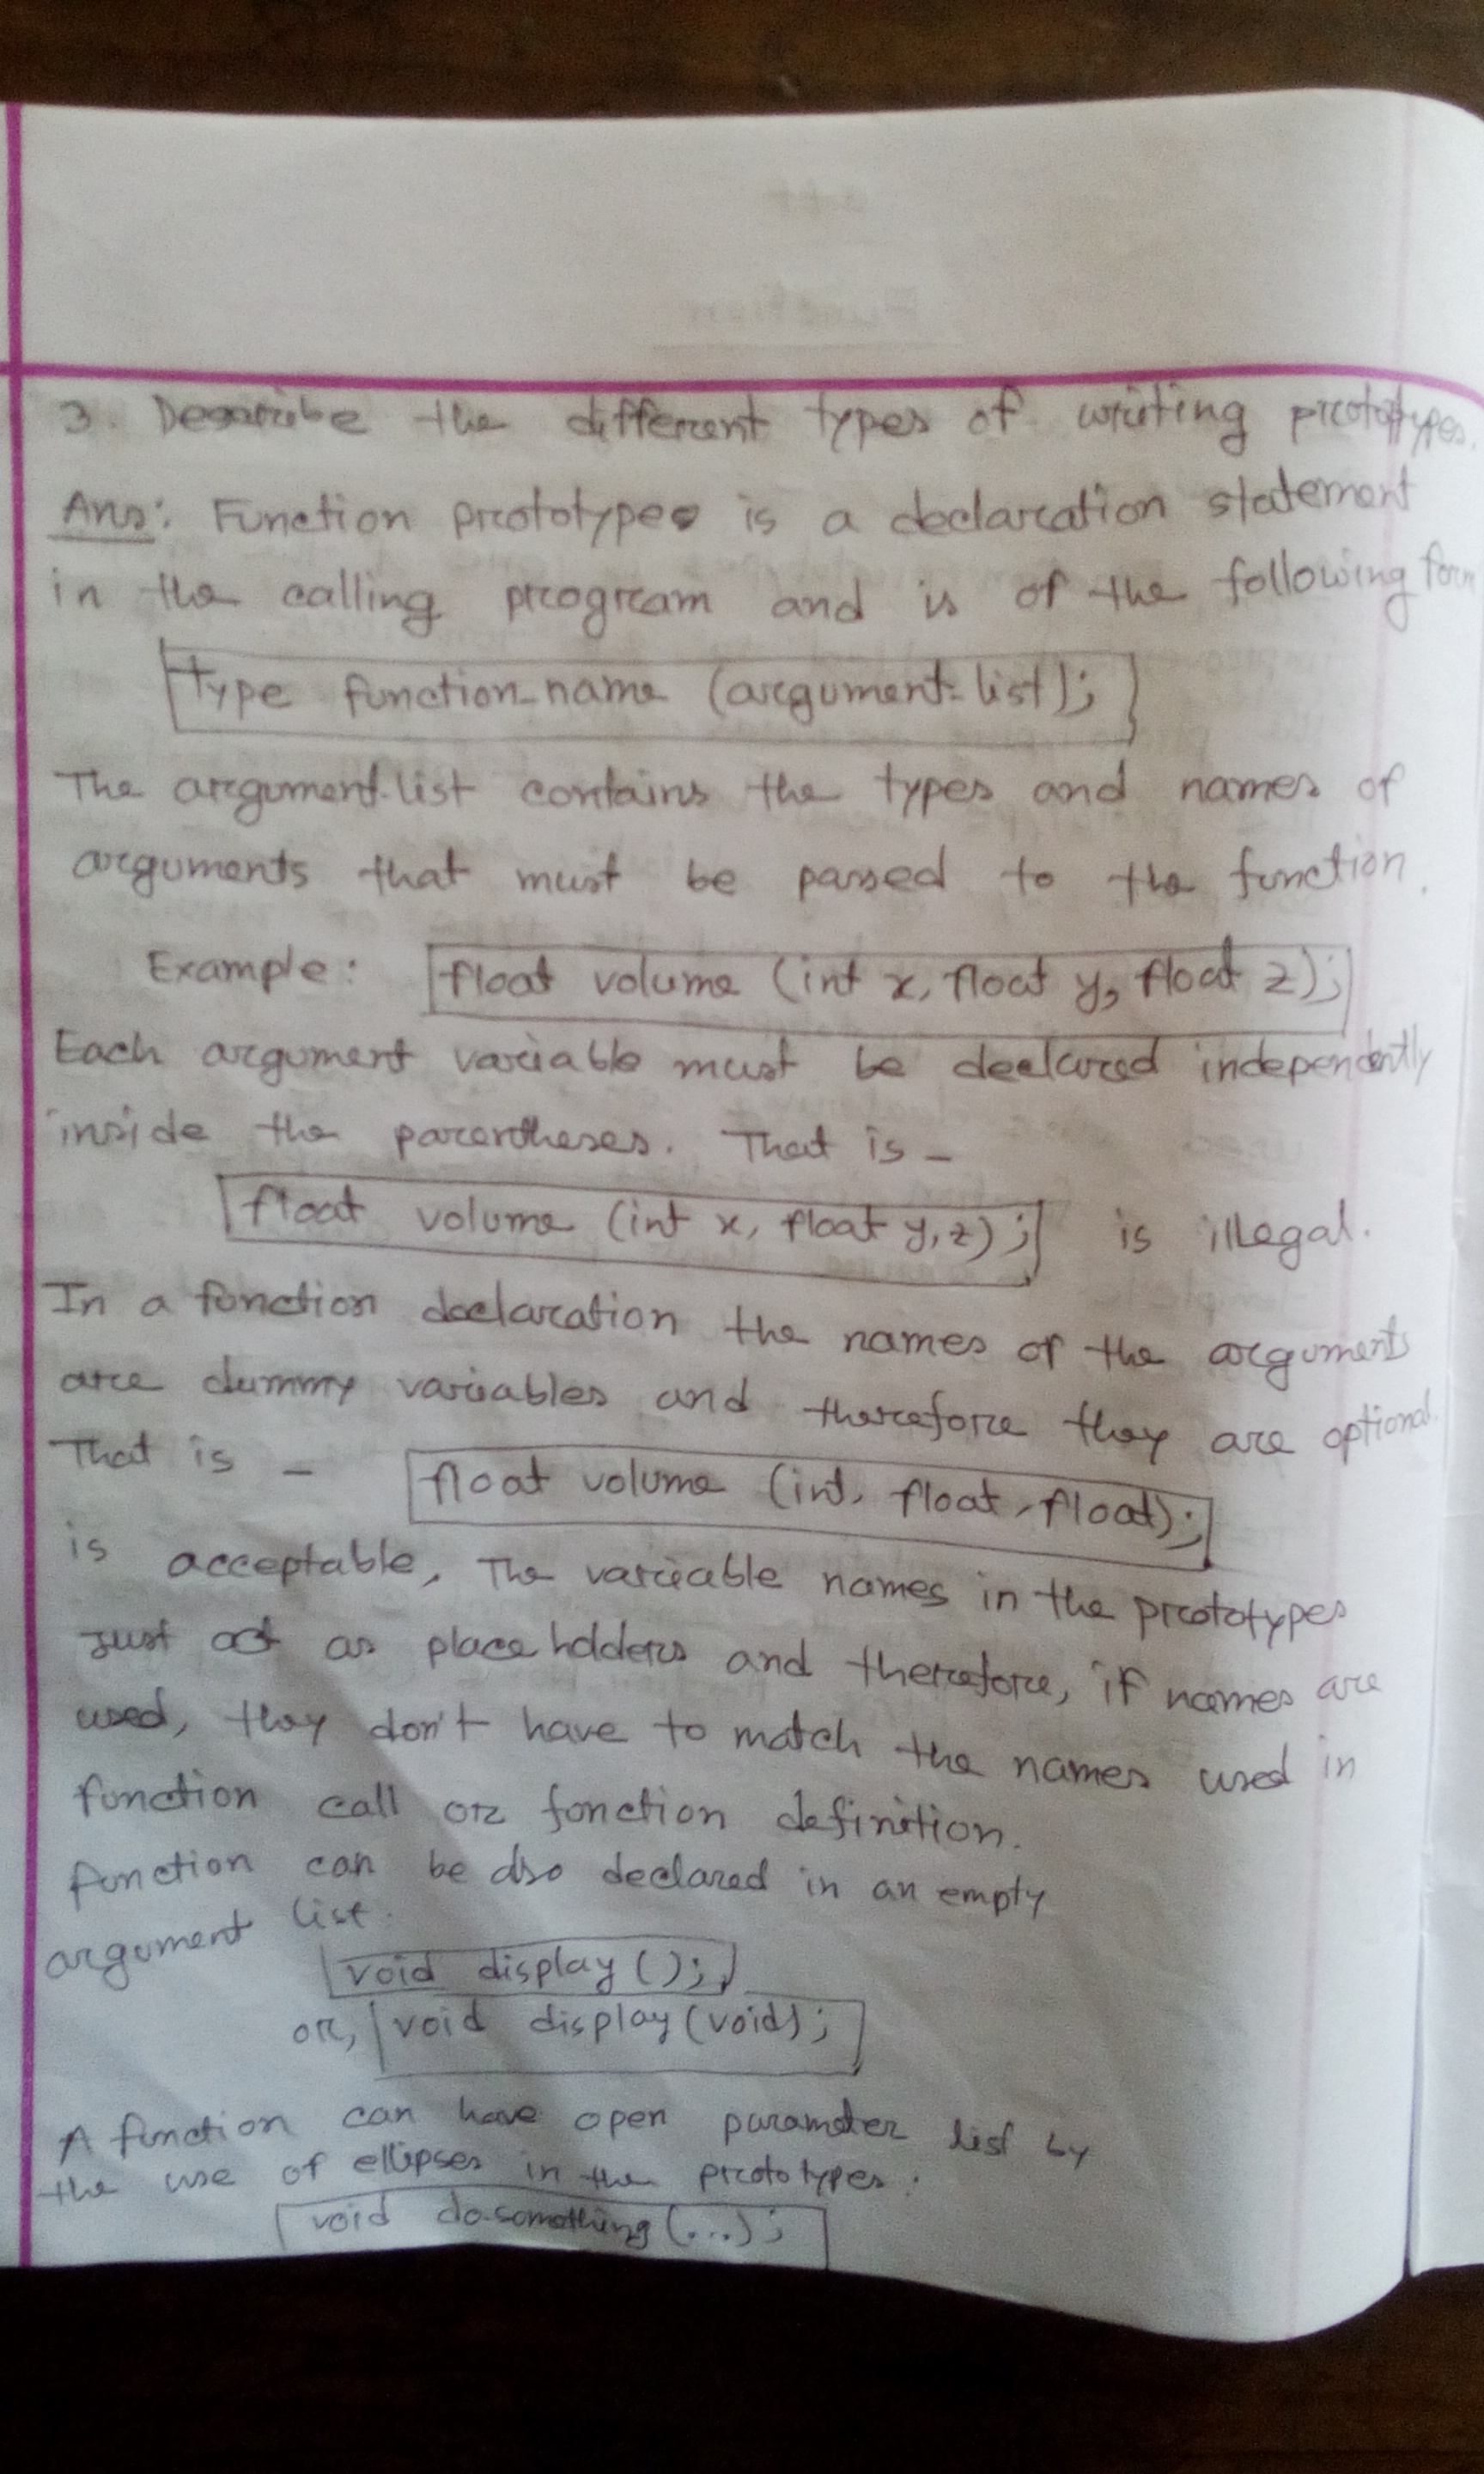 3. Describe the different types of writing prototypes.
Ans: Function prototypes is a declaration statement
in the calling program and is of the following form
type function-name (argument-list);
The argument-list contains the types and names of
arguments that must be passed to the function.
Example: float volume (int x, float y, float z);
Each argument variable must be declared independently
inside the parentheses. That is –
float volume (int x, float y, z); is illegal.
In a function declaration the names of the arguments
are dummy variables and therefore they are optional.
That is – float volume (int, float, float);
is acceptable, The variable names in the prototypes
just act as place holders and therefore, if names are
used, they don't have to match the names used in
function call or fonction definition.
function can be also declared in an empty
argument list.
void display ();
or, void display (void);
A function can have open parameter list by
the use of ellipses in the prototypes.
void do-something (...);